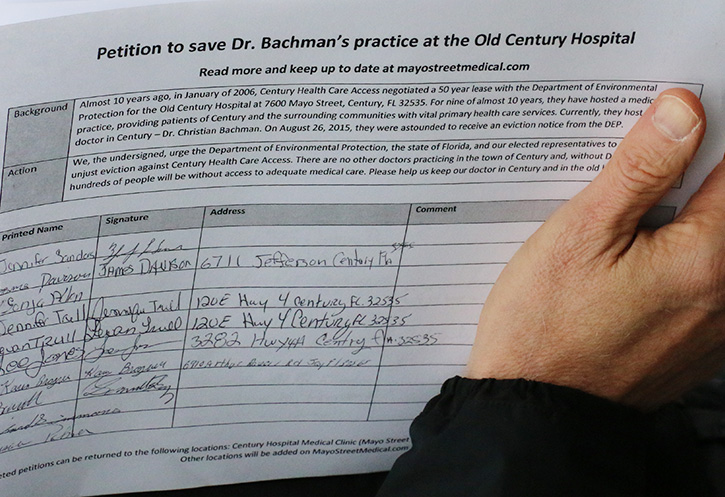 Petition to save Dr. Bachman's practice at the Old Century Hospital
Read more and keep up to date at mayostreetmedical.com
Background
Almost 10 years ago, in January of 2006, Century Health Care Access negotiated a 50 year lease with the Department of Environmental
Protection for the Old Century Hospital at 7600 Mayo Street, Century, FL 32535. For nine of almost 10 years, they have hosted a medic
practice, providing patients of Century and the surrounding communities with vital primary health care services. Currently, they host
doctor in Century – Dr. Christian Bachman. On August 26, 2015, they were astounded to receive an eviction notice from the DEP.
Action
We, the undersigned, urge the Department of Environmental Protection, the state of Florida, and our elected representatives to
unjust eviction against Century Health Care Access. There are no other doctors practicing in the town of Century and, without D
hundreds of people will be without access to adequate medical care. Please help us keep our doctor in Century and in the old
Printed Name Signature Address Comment
Jennifer
JAMES DAWSON 6711 Jefferson Century Fla
Jennifer Trull Jennifer Trull 120E Hwy 4 Century FL 32535
Trull 120E Hwy 4 Century FL 32535
Jones 3282 Hwy 4A Century FLA. 32535
eted petitions can be returned to the following locations: Century Hospital Medical Clinic (Mayo Street
Other locations will be added on MayoStreetMedical.com